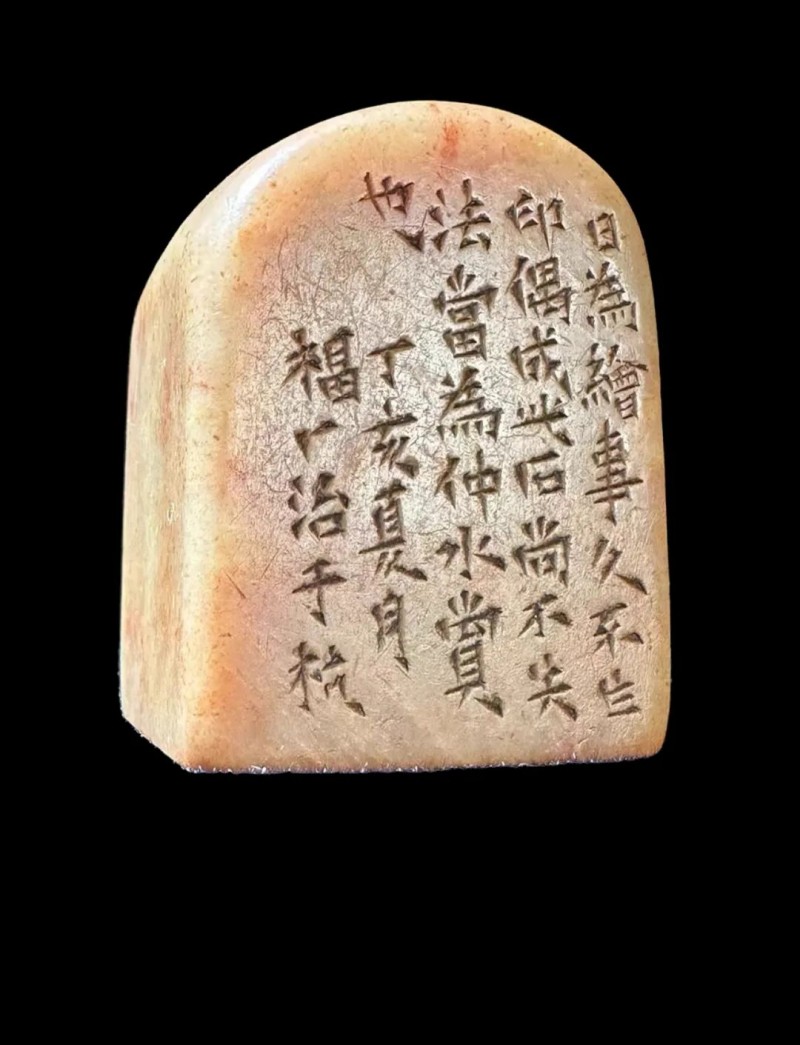 日為繪事久不
印偶成此石尚不失
法當為仲水賞
也 丁亥夏月
福厂治于杭